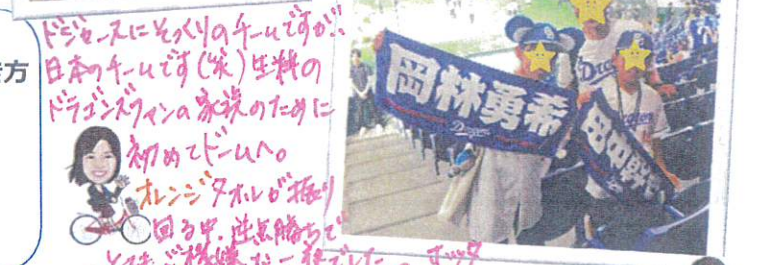 方
ドジャースにそっくりのチームですが!!
日本のチームです(笑)生粋の
ドラゴンズファンの家族のために
初めてドームへ。
オレンジタオルが振り
回る中、逆点勝ちで
とてもご機嫌な一日でした。
岡林勇希
Dragons
田中幹也